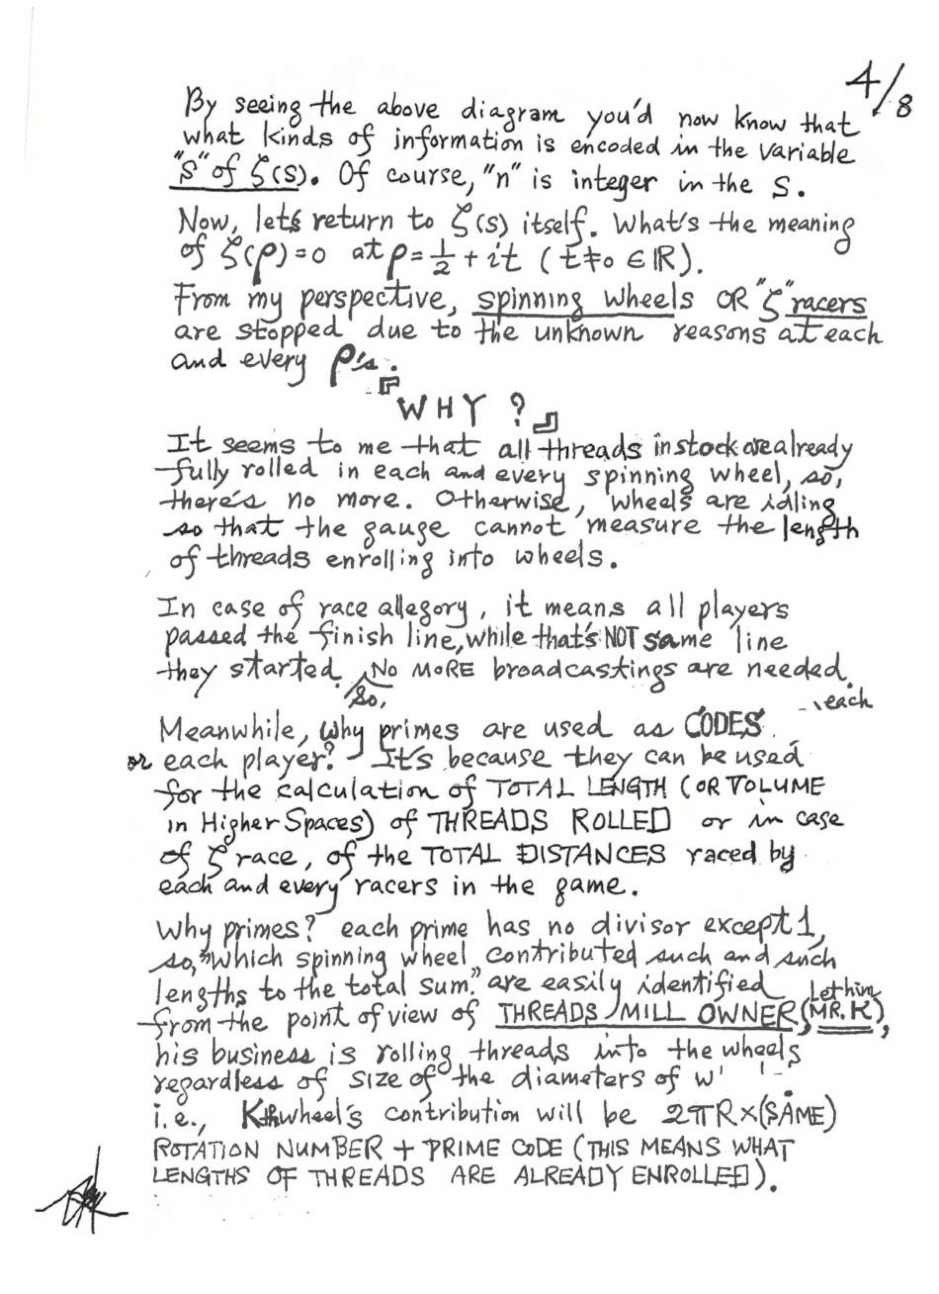 4/8
By seeing the above diagram you'd now know that
what kinds of information is encoded in the variable
"S" of ζ(S). Of course, "n" is integer in the S.
Now, let's return to ζ(s) itself. What's the meaning
of ζ(ρ)=0 at ρ=½+it (t≠0 ∈ℝ).
From my perspective, spinning wheels OR "ζ" racers
are stopped due to the unknown reasons at each
and every ρ's.
『WHY?』
It seems to me that all threads in stock are already
fully rolled in each and every spinning wheel, so,
there's no more. Otherwise, wheels are idling
so that the gauge cannot measure the length
of threads enrolling into wheels.
In case of race allegory, it means all players
passed the finish line, while that's NOT same line
they started. So, NO MORE broadcastings are needed.
Meanwhile, why primes are used as CODES each
or each player? It's because they can be used
for the calculation of TOTAL LENGTH (OR VOLUME
in Higher Spaces) of THREADS ROLLED or in case
of ζ race, of the TOTAL DISTANCES raced by
each and every racers in the game.
Why primes? each prime has no divisor except 1,
so, "which spinning wheel contributed such and such
lengths to the total sum." are easily identified
from the point of view of THREADS MILL OWNER, (Let him MR. K),
his business is rolling threads into the wheels
regardless of size of the diameters of w'
i.e., Kth wheel's contribution will be 2πR×(SAME)
ROTATION NUMBER + PRIME CODE (THIS MEANS WHAT
LENGTHS OF THREADS ARE ALREADY ENROLLED).